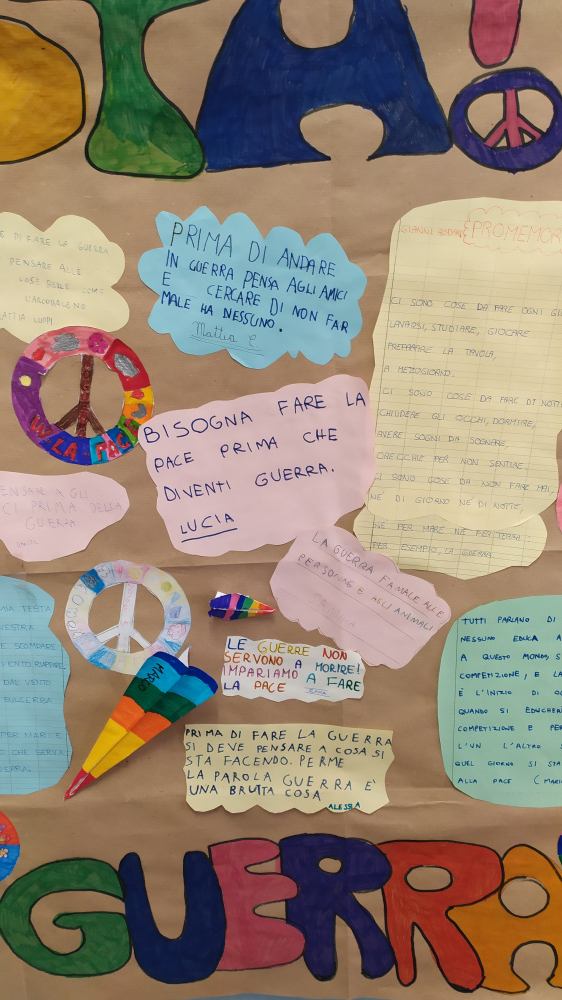 STA!
E DI FARE LA GUERRA
PENSARE ALLE
COSE BELLE COME
L'ARCOBALENO
MATTIA LUPPI
PRIMA DI ANDARE
IN GUERRA PENSA AGLI AMICI
E CERCARE DI NON FAR
MALE HA NESSUNO.
Mattia C
GIANNI RODARI PROMEMOR
CI SONO COSE DA FARE OGNI GI
LAVARSI, STUDIARE, GIOCARE
PREPARARE LA TAVOLA,
A MEZZOGIORNO.
CI SONO COSE DA FARE DI NOTT
CHIUDERE GLI OCCHI, DORMIRE,
AVERE SOGNI DA SOGNARE
ORECCHIE PER NON SENTIRE.
CI SONO COSE DA NON FARE MAI,
NÉ DI GIORNO NÉ DI NOTTE,
NÉ PER MARE NÉ PER TERRA:
PER ESEMPIO, LA GUERRA.
W LA PACE
BISOGNA FARE LA
PACE PRIMA CHE
DIVENTI GUERRA.
LUCIA
PENSARE A GLI
CI PRIMA DELLA
GUERRA
LA GUERRA FA MALE ALLE
PERSONE E AGLI ANIMALI
MA TESTA
VESTRA
E SCOMPARE
VENTO
DAL VENTO
BUFERA
PER MARTE
CHE SERVA
ERRA.
MARCO
LE GUERRE NON
SERVONO A MORIRE!
IMPARIAMO A FARE
LA PACE
PRIMA DI FARE LA GUERRA
SI DEVE PENSARE A COSA SI
STA FACENDO. PERME
LA PAROLA GUERRA E'
UNA BRUTTA COSA
ALESSIA
TUTTI PARLANO DI
NESSUNO EDUCA A
A QUESTO MONDO, S
COMPETIZIONE, E LA
È L'INIZIO DI
QUANDO SI EDUCHER
COMPETIZIONE E PER
L'UN L'ALTRO S
QUEL GIORNO SI STA
ALLA PACE (MARI
GUERRA